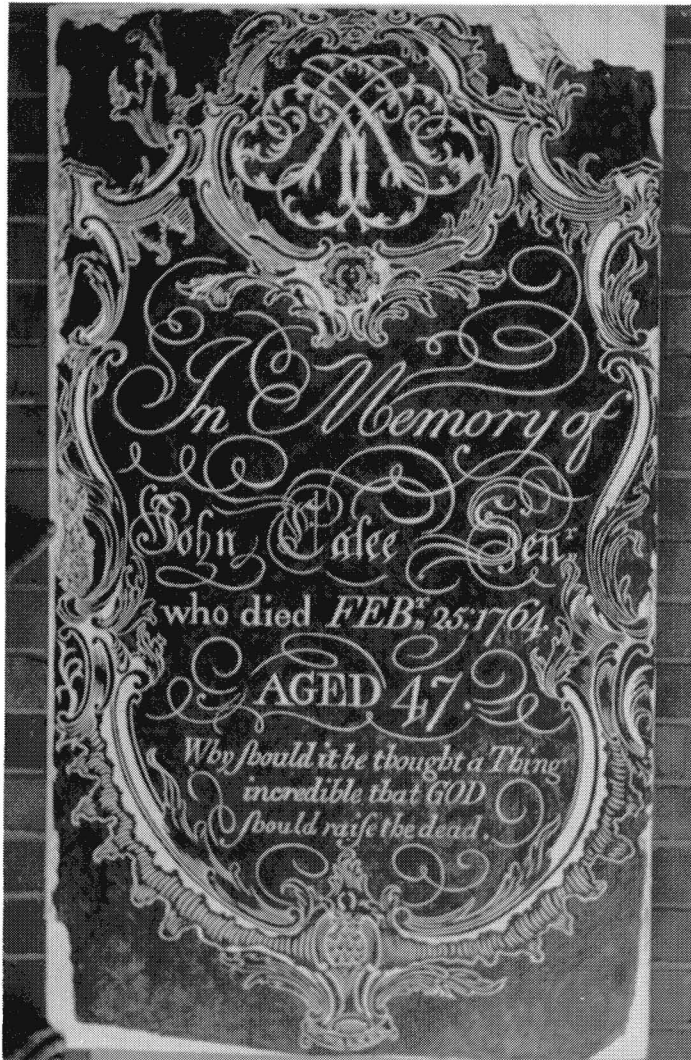 In Memory of
John Calee Sen.ʳ
who died FEBʳ. 25: 1764.
AGED 47.
Why ſhould it be thought a Thing
incredible that GOD
ſhould raiſe the dead.